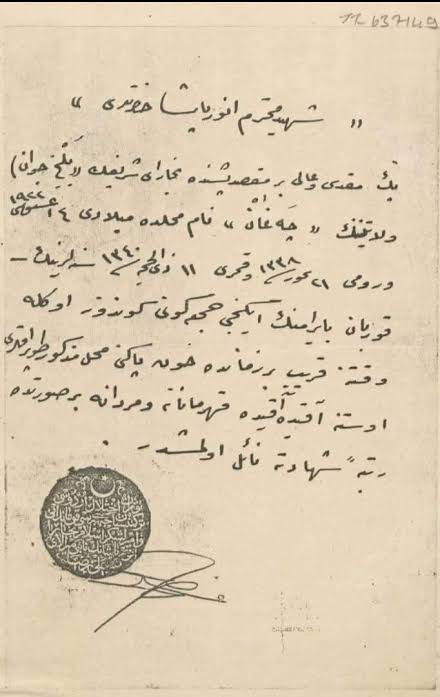 12-637149
« شهید محترم انور پاشا حضرتلری »
پك مقدس و عالی بر مقصد پشنده بخارای شریفك «بلجوان»
ولایتنك « چه غان » نام محلده میلادی ٤ اغستوس ١٩٢٢
و رومی ٢١ تموز ١٣٣٨ و قمری ١١ ذی الحجه ١٣٤٠ سنه لرینك
قوربان بایرامنك ایكنجی جمعه كونی كوندوز اوكله
وقتنه قریب بر زمانده خون پاكنی محل مذكور طوپراقلری
اوستنه آقیده آقیده قهرمانانه و مردانه بر صورتده
رتبهٔ شهادته نائل اولمشدر .